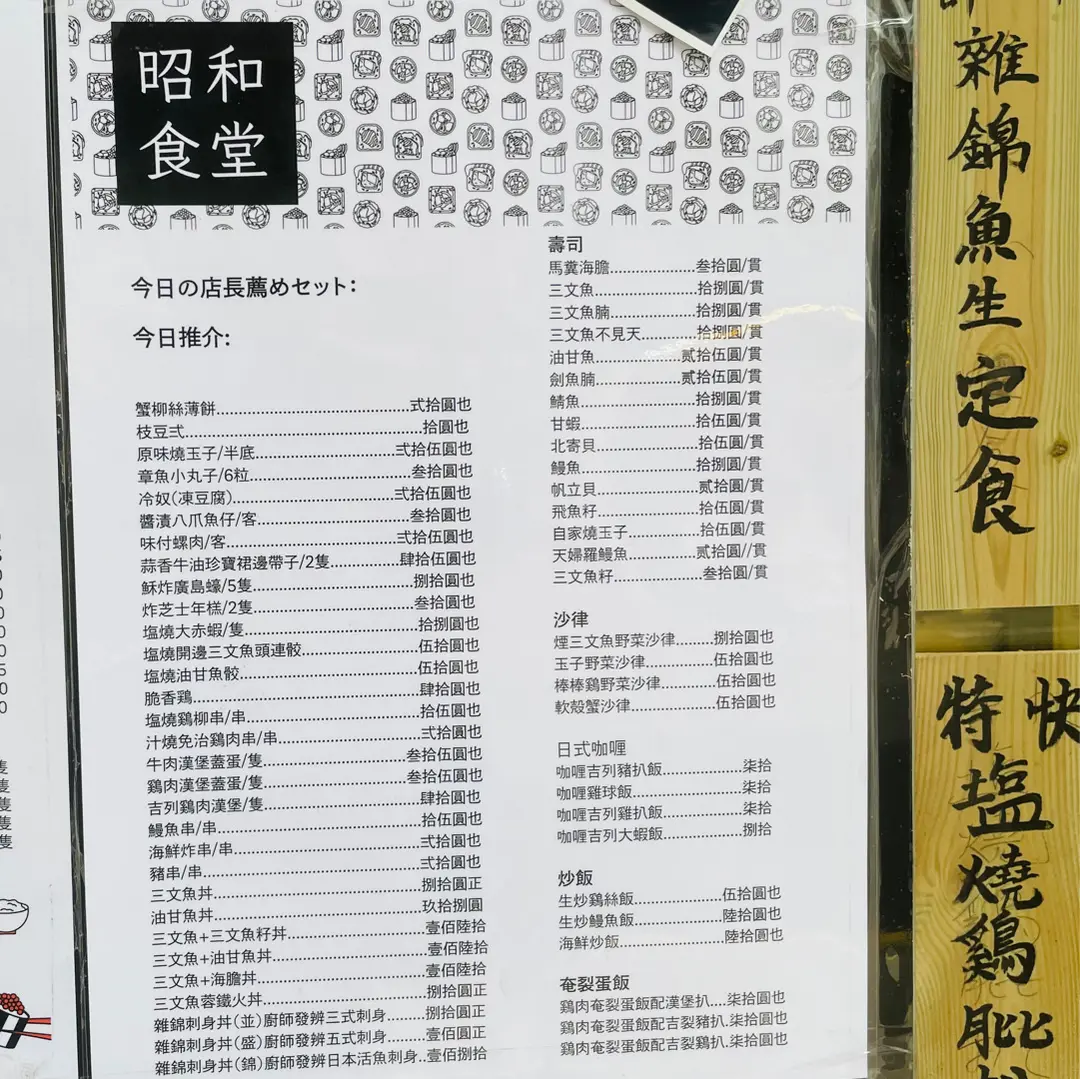 昭和
食堂
今日の店長薦めセット:
今日推介:
蟹柳絲薄餅........................弍拾圓也
枝豆弍........................拾圓也
原味燒玉子/半底........................弍拾伍圓也
章魚小丸子/6粒........................叁拾圓也
冷奴(凍豆腐)........................弍拾伍圓也
醬漬八爪魚仔/客........................叁拾圓也
味付螺肉/客........................弍拾伍圓也
蒜香牛油珍寶裙邊帶子/2隻........................肆拾伍圓也
穌炸廣島蠔/5隻........................捌拾圓也
炸芝士年糕/2隻........................叁拾圓也
塩燒大赤蝦/隻........................拾捌圓也
塩燒開邊三文魚頭連骹........................伍拾圓也
塩燒油甘魚骹........................伍拾圓也
脆香鶏........................肆拾圓也
塩燒鶏柳串/串........................拾伍圓也
汁燒免治鶏肉串/串........................弍拾圓也
牛肉漢堡蓋蛋/隻........................叁拾伍圓也
鶏肉漢堡蓋蛋/隻........................叁拾伍圓也
吉列鶏肉漢堡/隻........................肆拾圓也
鰻魚串/串........................拾伍圓也
海鮮炸串/串........................弍拾圓也
豬串/串........................弍拾圓也
三文魚丼........................捌拾圓正
油甘魚丼........................玖拾捌圓
三文魚+三文魚籽丼........................壹佰陸拾
三文魚+油甘魚丼........................壹佰陸拾
三文魚+海膽丼........................壹佰陸拾
三文魚蓉鐵火丼........................捌拾圓正
雜錦刺身丼(並)廚師發辨三式刺身.........捌拾圓正
雜錦刺身丼(盛)廚師發辨五式刺身.........壹佰圓正
雜錦刺身丼(錦)廚師發辨日本活魚刺身..壹佰捌拾
壽司
馬糞海膽....................叁拾圓/貫
三文魚........................拾捌圓/貫
三文魚腩....................拾捌圓/貫
三文魚不見天.............拾捌圓/貫
油甘魚....................贰拾伍圓/貫
劍魚腩....................贰拾伍圓/貫
鯖魚........................拾捌圓/貫
甘蝦........................拾伍圓/貫
北寄貝........................拾伍圓/貫
鰻魚........................拾捌圓/貫
帆立貝........................贰拾圓/貫
飛魚籽........................拾伍圓/貫
自家燒玉子.................拾伍圓/貫
天婦羅鰻魚................贰拾圓//貫
三文魚籽....................叁拾圓/貫
沙律
煙三文魚野菜沙律.........捌拾圓也
玉子野菜沙律................伍拾圓也
棒棒鶏野菜沙律.............伍拾圓也
軟殼蟹沙律....................伍拾圓也
日式咖喱
咖喱吉列豬扒飯...................柒拾
咖喱雞球飯..........................柒拾
咖喱吉列雞扒飯...................柒拾
咖喱吉列大蝦飯...................捌拾
炒飯
生炒鶏絲飯....................伍拾圓也
生炒鰻魚飯....................陸拾圓也
海鮮炒飯........................陸拾圓也
奄裂蛋飯
鶏肉奄裂蛋飯配漢堡扒....柒拾圓也
鶏肉奄裂蛋飯配吉裂豬扒.柒拾圓也
鶏肉奄裂蛋飯配吉裂鶏扒.柒拾圓也
雜錦魚生定食
快
特塩燒鷄肶